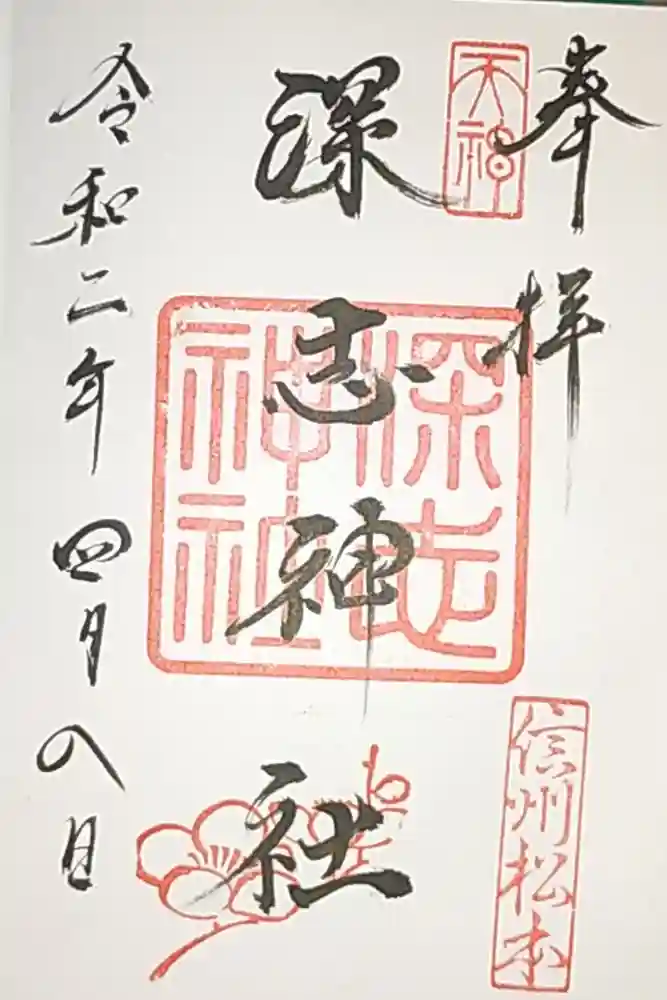 奉拝
天神
信州松本
深志神社
深志神社
令和二年四月八日